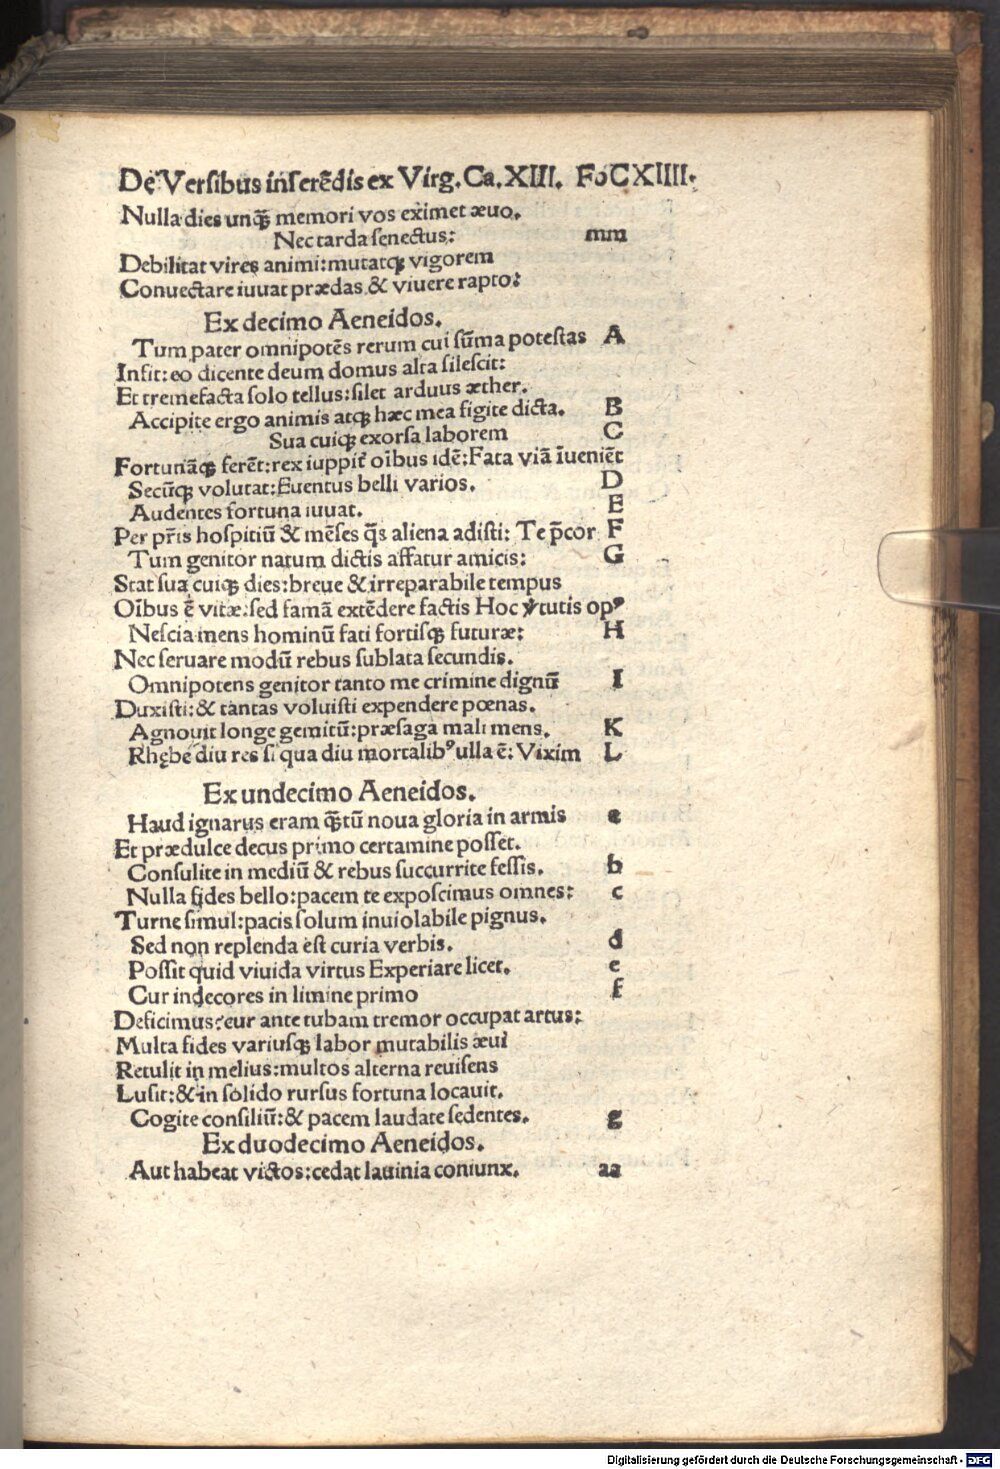 De Versibus inserēdis ex Virg. Ca. XIII. Fo CXIIII.
Nulla dies unꝗ̄ memori vos eximet ævo.
Nec tarda senectus: mm
Debilitat vires animi: mutatqꝫ vigorem
Convectare iuvat prædas & vivere rapto:
Ex decimo Aeneidos.
Tum pater omnipotēs rerum cui sūma potestas A
Infit: eo dicente deum domus alta silescit:
Et tremefacta solo tellus: silet arduus æther.
Accipite ergo animis atqꝫ hæc mea figite dicta. B
Sua cuiqꝫ exorsa laborem C
Fortunāqꝫ ferēt: rex iuppit̃ oībus idē: Fata viā īveniēt
Secūqꝫ volutat: Eventus belli varios. D
Audentes fortuna iuvat. E
Per pr̄is hospitiū & mēses q̄s aliena adisti: Te p̄cor F
Tum genitor natum dictis affatur amicis: G
Stat sua cuiqꝫ dies: breve & irreparabile tempus
Oībus ē vitæ: sed famā extēdere factis Hoc ṽtutis opꝰ
Nescia mens hominū fati fortisqꝫ futuræ: H
Nec servare modū rebus sublata secundis.
Omnipotens genitor tanto me crimine dignū I
Duxisti: & tantas voluisti expendere pœnas.
Agnovit longe gemitū: præsaga mali mens. K
Rhębe diu res si qua diu mortalibꝰ ulla ē: Vixim L
Ex undecimo Aeneidos.
Haud ignarus eram ꝗ̄tū nova gloria in armis a
Et prædulce decus primo certamine posset.
Consulite in mediū & rebus succurrite fessis. b
Nulla fides bello: pacem te exposcimus omnes: c
Turne simul: pacis solum inviolabile pignus.
Sed non replenda est curia verbis. d
Possit quid vivida virtus Experiare licet. e
Cur indecores in limine primo f
Deficimus: cur ante tubam tremor occupat artus:
Multa fides variusqꝫ labor mutabilis ævi
Retulit in melius: multos alterna revisens
Lusit: & in solido rursus fortuna locavit.
Cogite consiliū: & pacem laudate sedentes. g
Ex duodecimo Aeneidos.
Aut habeat victos: cedat lavinia coniunx. aa
Digitalisierung gefördert durch die Deutsche Forschungsgemeinschaft - DFG